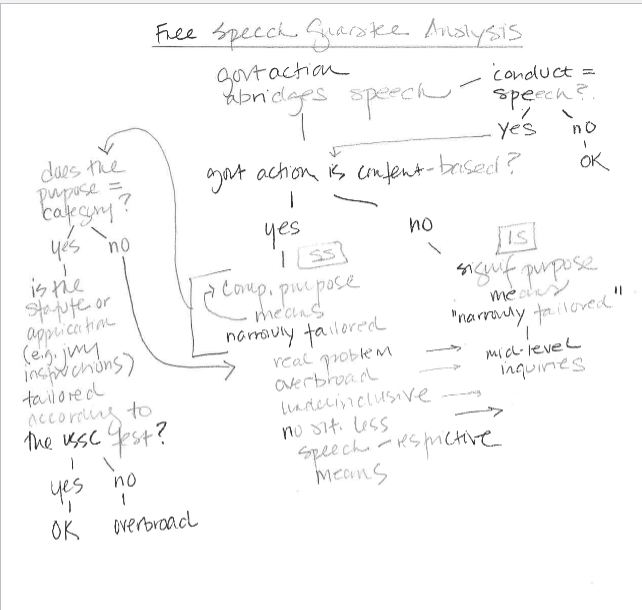 Free Speech Guarantee Analysis
govt action
abridges speech
conduct =
speech?
yes no
OK
govt action is content-based?
yes
no
SS
comp. purpose
means
narrowly tailored
real problem
overbroad
underinclusive
no alt. less
speech-restrictive
means
IS
signif purpose
means
"narrowly tailored"
mid-level
inquiries
does the
purpose =
category?
yes no
is the
statute or
application
(e.g. jury
instructions)
tailored
according to
the USSC test?
yes no
OK overbroad